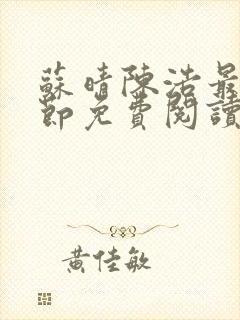 蘇晴陳浩最
節免費閱讀
黃佳敏